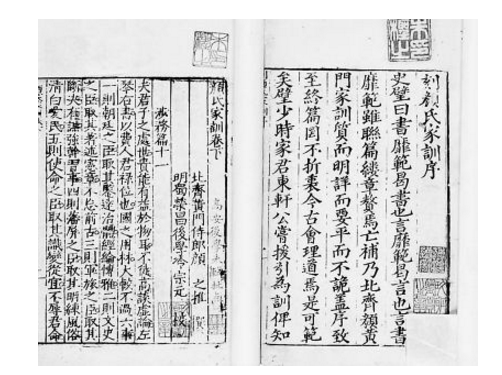 刻顏氏家訓序
史璧曰書靡範曷書也言靡範曷言也言書
靡範雖聯篇縷章贅焉亡補乃北齊顏黃
門家訓質而明詳而要平而不詭蓋序致
至終篇罔不折衷今古會理道焉是可範
矣璧少時家君東軒公嘗援引為訓俾知
顏氏家訓卷下
北齊黃門侍郎顏之推 撰
明蜀榮昌後學冷宗元 校
涉務篇十一
夫君子之處世貴能有益於物耳不徒高談虛論左
琴右書以費人君祿位也國之用材大較不過六事
一則朝廷之臣取其鑒達治體經綸博雅二則文史
之臣取其著述憲章不忘前古三則軍旅之臣取其
斷決有謀強幹習事四則藩屏之臣取其明練風俗
清白愛民五則使命之臣取其識變從宜不辱君命